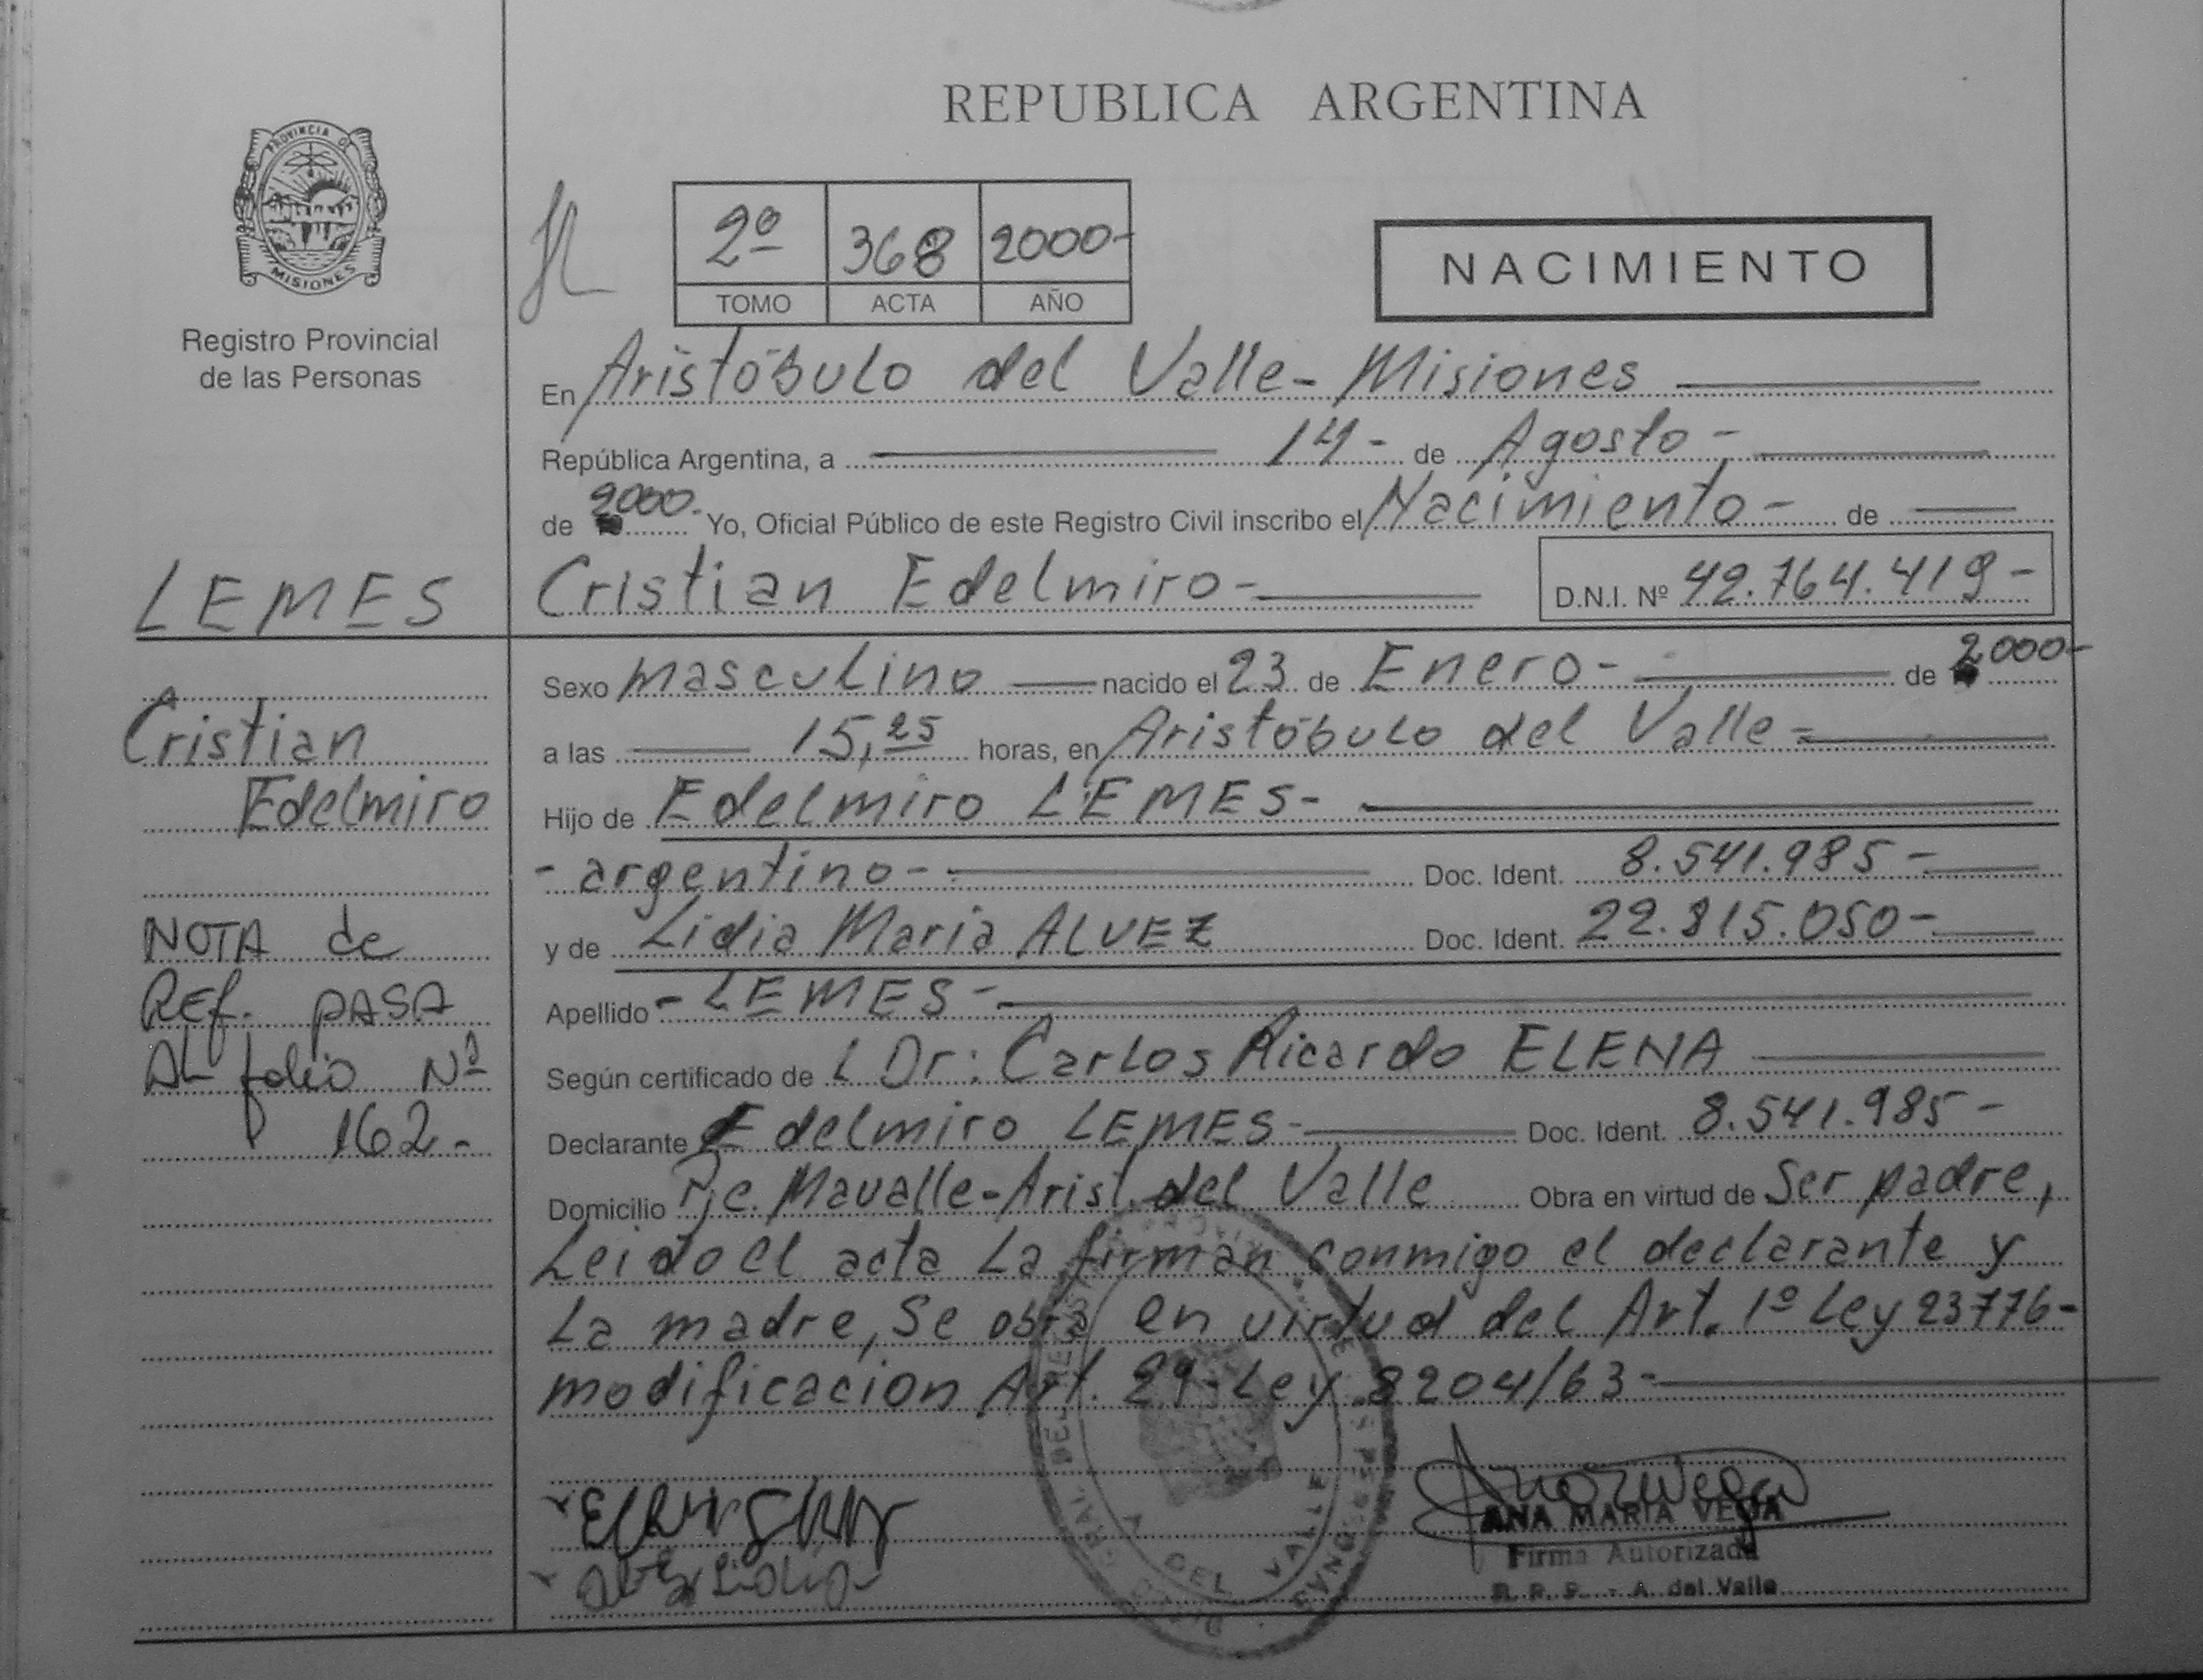 REPUBLICA ARGENTINA
PROVINCIA DE
MISIONES
Registro Provincial
de las Personas
2º 368 2000-
TOMO ACTA AÑO
NACIMIENTO
En Aristóbulo del Valle- Misiones
República Argentina, a 14- de Agosto-
de 2000- Yo, Oficial Público de este Registro Civil inscribo el Nacimiento- de
LEMES Cristian Edelmiro- D.N.I. Nº 42.764.419-
Sexo masculino nacido el 23 de Enero- de 2000-
Cristian
a las 15,25 horas, en Aristóbulo del Valle-
Edelmiro
Hijo de Edelmiro LEMES-
- argentino- Doc. Ident. 8.541.985-
NOTA de
y de Lidia Maria ALVEZ Doc. Ident. 22.815.050-
REf. PASA
Apellido - LEMES-
AL folio Nº
Según certificado de L Dr: Carlos Ricardo ELENA
162-
Declarante Edelmiro LEMES- Doc. Ident. 8.541.985-
Domicilio Pje. Mavalle-Arist. del Valle Obra en virtud de Ser padre,
Leido el acta La firman conmigo el declarante y
La madre, Se obra en virtud del Art. 1º Ley 23776-
modificacion Art. 29-Ley 8204/63-
ANA MARIA VEGA
Firma Autorizada
R. P. P. - A. del Valle
DEL VALLE